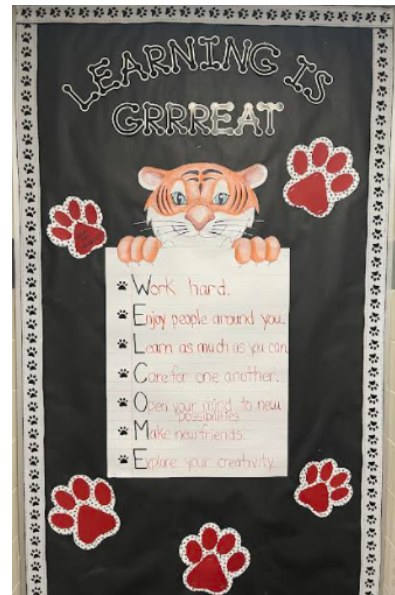 LEARNING IS
GRRREAT
Work hard.
Enjoy people around you.
Learn as much as you can
Care for one another.
Open your mind to new
possibilities
Make new friends.
Explore your creativity.